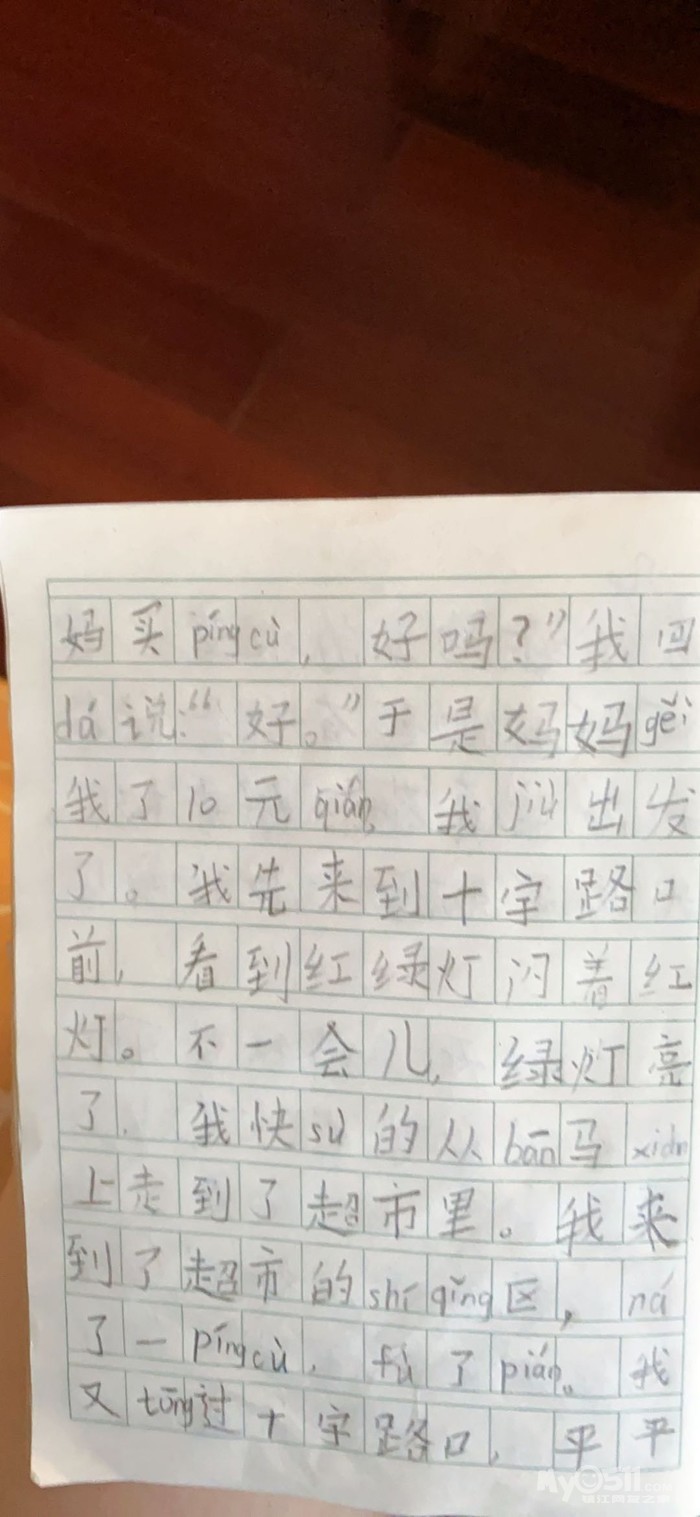 妈买píngcù，好吗？”我回
dá说：“好。”于是妈妈gěi
我了10元qián，我jiù出发
了。我先来到十字路口
前，看到红绿灯闪着红
灯。不一会儿，绿灯亮
了，我快sù的从bān马xiàn
上走到了超市里。我来
到了超市的shí qǐng区，ná
了一píngcù，fù了pián。我
又tōng过十字路口，平平
My0511.com